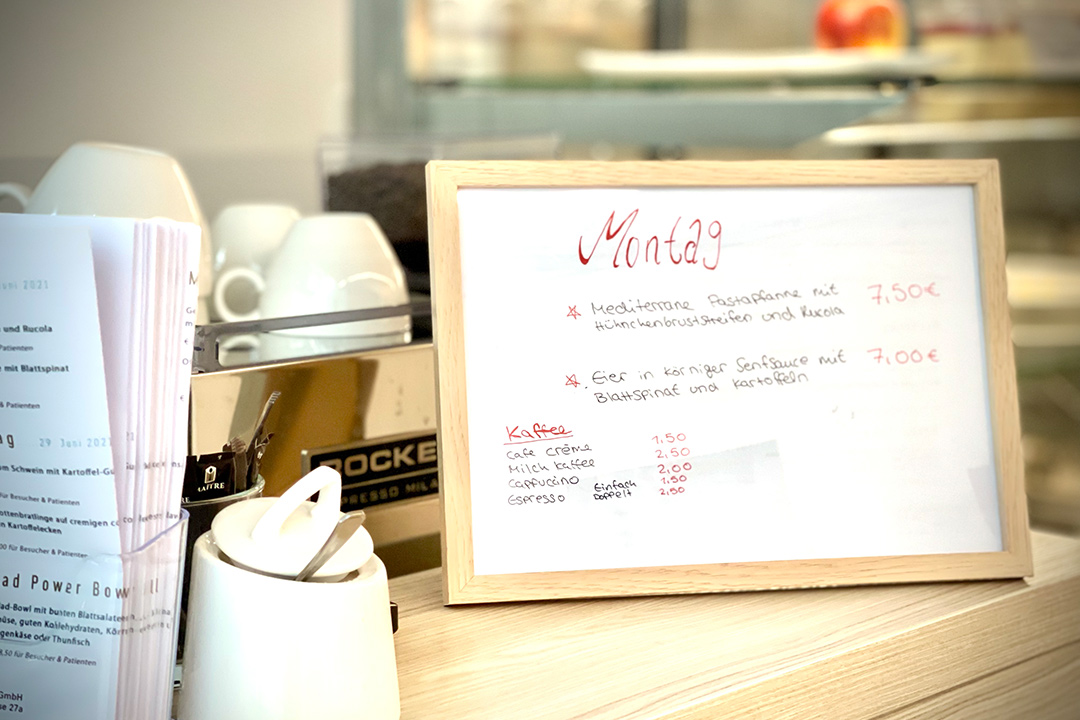 Montag
Mediterrane Pastapfanne mit 7,50€
Hühnchenbruststreifen und Rucola
Eier in körniger Senfsauce mit 7,00€
Blattspinat und Kartoffeln
Kaffee
Cafe crème 1,50
Milch Kaffee 2,50
Cappuccino 2,00
Espresso Einfach 1,50
Doppelt 2,50
ROCKE
PRESSO MILA
Juni 2021
und Rucola
Patienten
mit Blattspinat
& Patienten
ag 29 Juni 2021
om Schwein mit Kartoffel-Gu
für Besucher & Patienten
ottenbratlinge auf cremigen
n Kartoffelecken
00 für Besucher & Patienten
ad Power Bow
ad-Bowl mit bunten Blattsalaten
müse, guten Kohlehydraten,
genkäse oder Thunfisch
8,50 für Besucher & Patienten
GmbH
se 27a